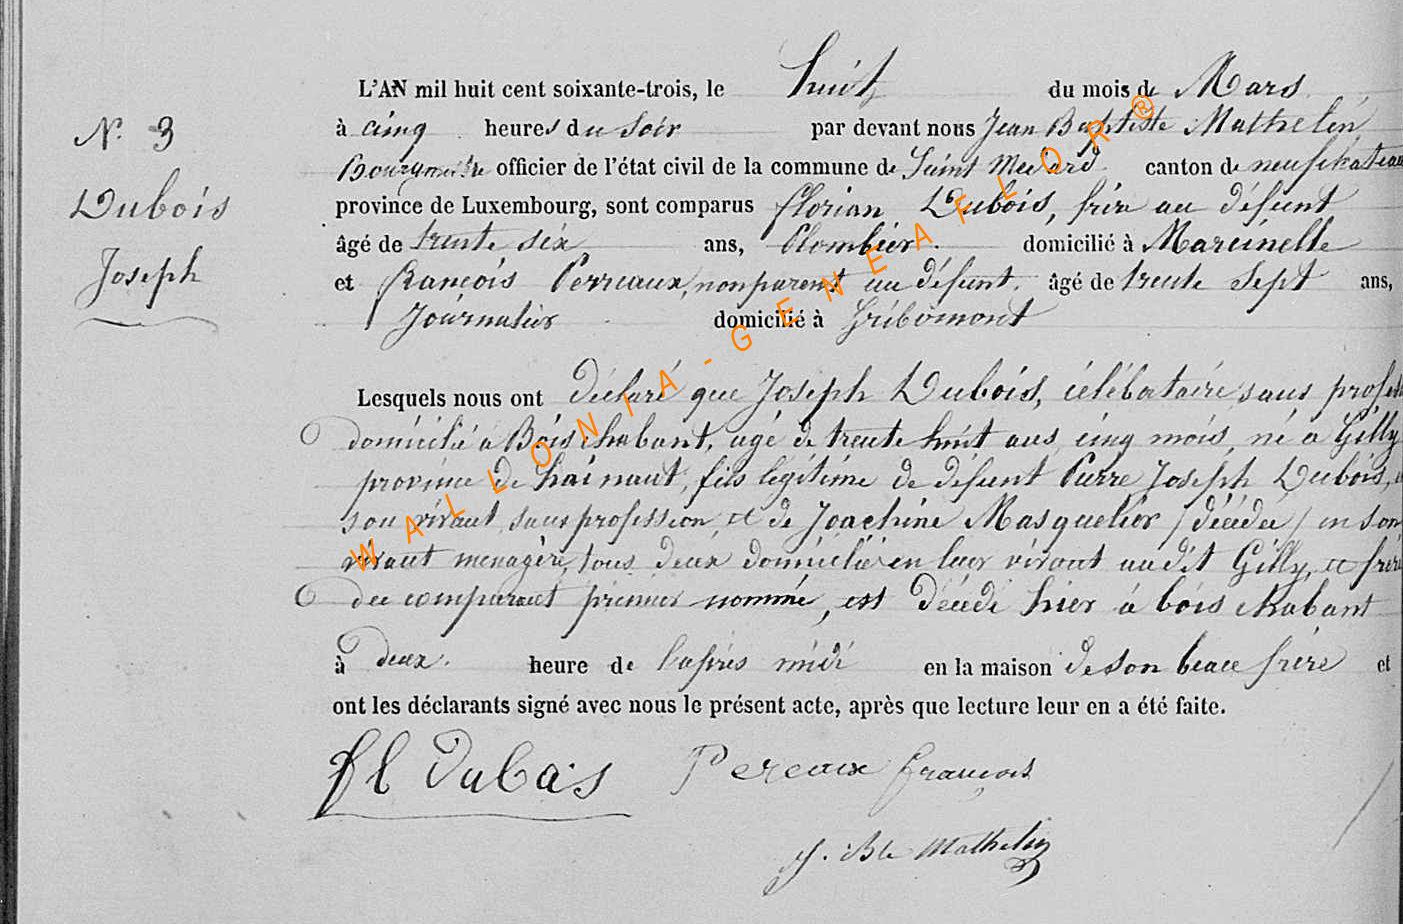 N.° 3
Dubois
Joseph
L'AN mil huit cent soixante-trois, le huit du mois de Mars
à cinq heures du soir par devant nous Jean Baptiste Mathelin
Bourgmestre officier de l'état civil de la commune de Saint Medard canton de neufchateau
province de Luxembourg, sont comparus florian Dubois, frère au défunt
âgé de trente six ans, Plombier domicilié à Marcinelle
et françois Perreaux, non parent au défunt, âgé de trente sept ans,
Journalier domicilié à Gribômont
Lesquels nous ont déclaré que Joseph Dubois, célébataire sans profession
domicilié à Bois chabant, agé de trente huit ans cinq mois, né à Gilly
province de hainaut, fils légitime de défunt Pierre Joseph Dubois, en
son vivant sans profession et de Joachine Masquelier (décédée) en son
vivant menagère, tous deux domicilié en leur vivant audit Gilly, et frère
du comparant premier nommé, est décédé hier à bois chabant
à deux heure de l'après midi en la maison de son beau frère et
ont les déclarants signé avec nous le présent acte, après que lecture leur en a été faite.
fl Dubois Pereaux françois
J. Bte Mathelin
WALLONIA-GENEAFLOR®